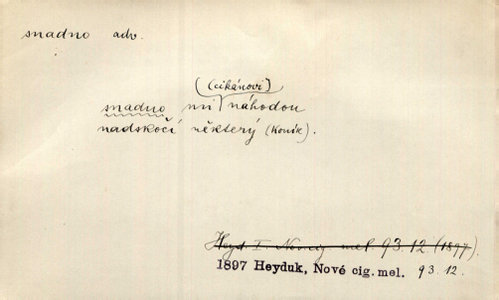 snadno adv.
(cikánovi)
snadno mi náhodou
nadskočí některý (koník).
Heyd. I. Nov. cig. mel. 93.12. (1897)
1897 Heyduk, Nové cig. mel. 93.12.